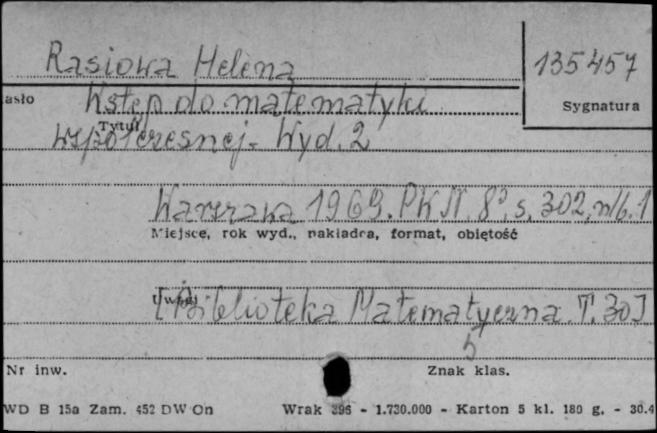 Rasiowa Helena
135457
asło
Wstęp do matematyki
Sygnatura
Tytuł
współczesnej. Wyd. 2
Warszawa 1969. PWN. 8°, s. 302, nlb. 1
Miejsce, rok wyd., nakładca, format, objętość
Uwagi
[Biblioteka Matematyczna. T. 30]
5
Nr inw.
Znak klas.
WD B 15a Zam. 452 DW On
Wrak 396 - 1.730.000 - Karton 5 kl. 180 g. - 30.4